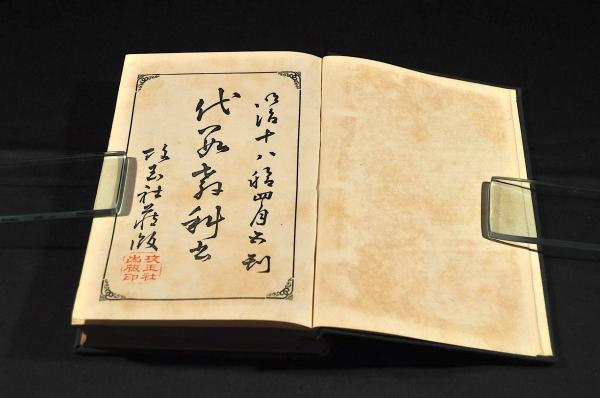 明治十八稔四月刻
代數教科書
攻玉社藏版
攻玉社
出版印